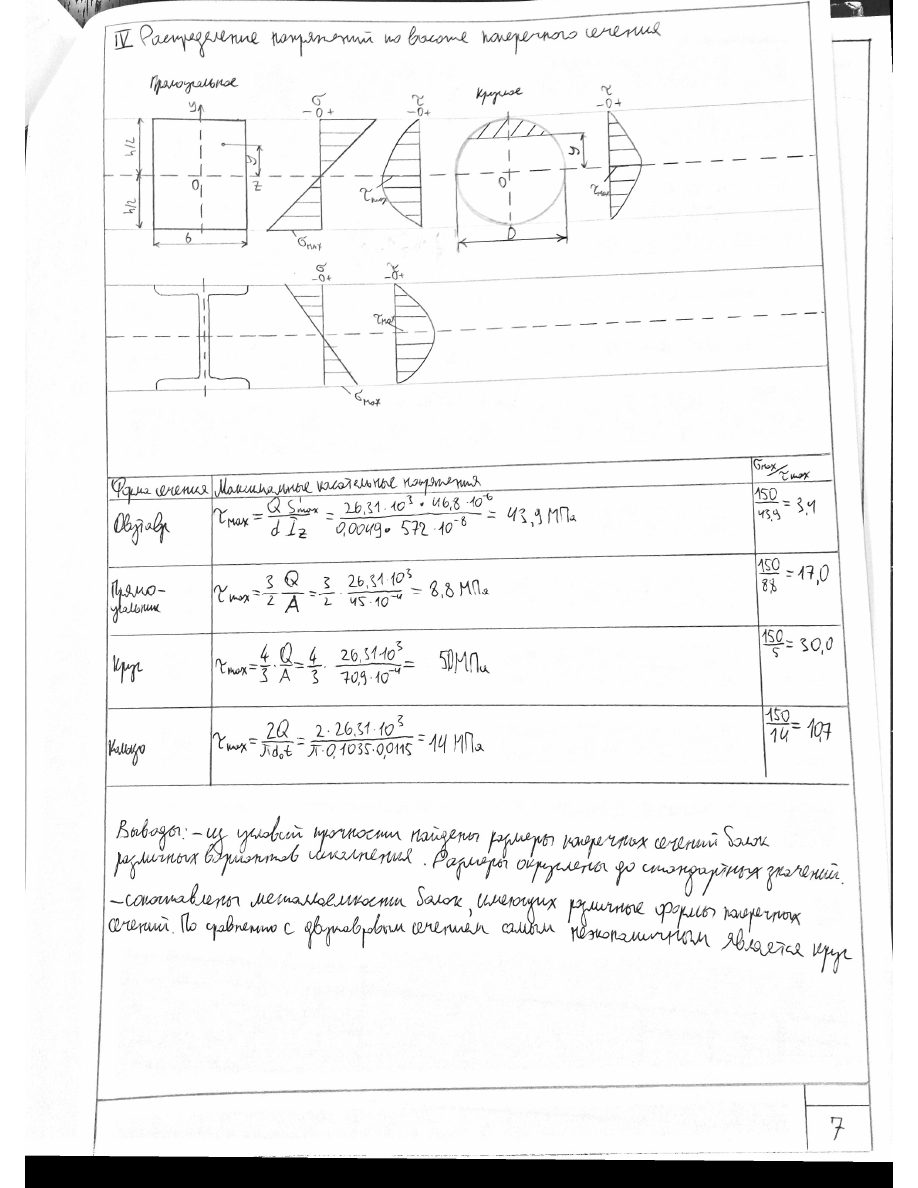 IV Распределение напряжений по высоте поперечного сечения
Прямоугольное
Круглое
y
σ
−0+
τ
−0+
τ
−0+
h/2
h/2
y
0
z
b
σmax
τmax
y
0
D
τmax
σ
−0+
τ
−0+
τmax
σmax
Форма сечения Максимальные касательные напряжения σmax/τmax
Двутавр τmax = Q Smax / d Iz = 26,31·10³ · 46,8·10⁻⁶ / 0,0049 · 572·10⁻⁸ = 43,9 МПа 150/43,9 = 3,4
Прямо-
угольник τmax = 3/2 Q/A = 3/2 · 26,31·10³ / 45·10⁻⁴ = 8,8 МПа 150/8,8 = 17,0
Круг τmax = 4/3 · Q/A = 4/3 · 26,31·10³ / 70,9·10⁻⁴ = 50 МПа 150/5 = 30,0
Кольцо τmax = 2Q / πd₀t = 2·26,31·10³ / π·0,1035·0,0115 = 14 МПа 150/14 = 10,7
Выводы: – из условий прочности найдены размеры поперечных сечений балок
различных вариантов исполнения. Размеры округлены до стандартных значений.
– сопоставлены металлоемкости балок, имеющих различные формы поперечных
сечений. По сравнению с двутавровым сечением самым неэкономичным является круг
7